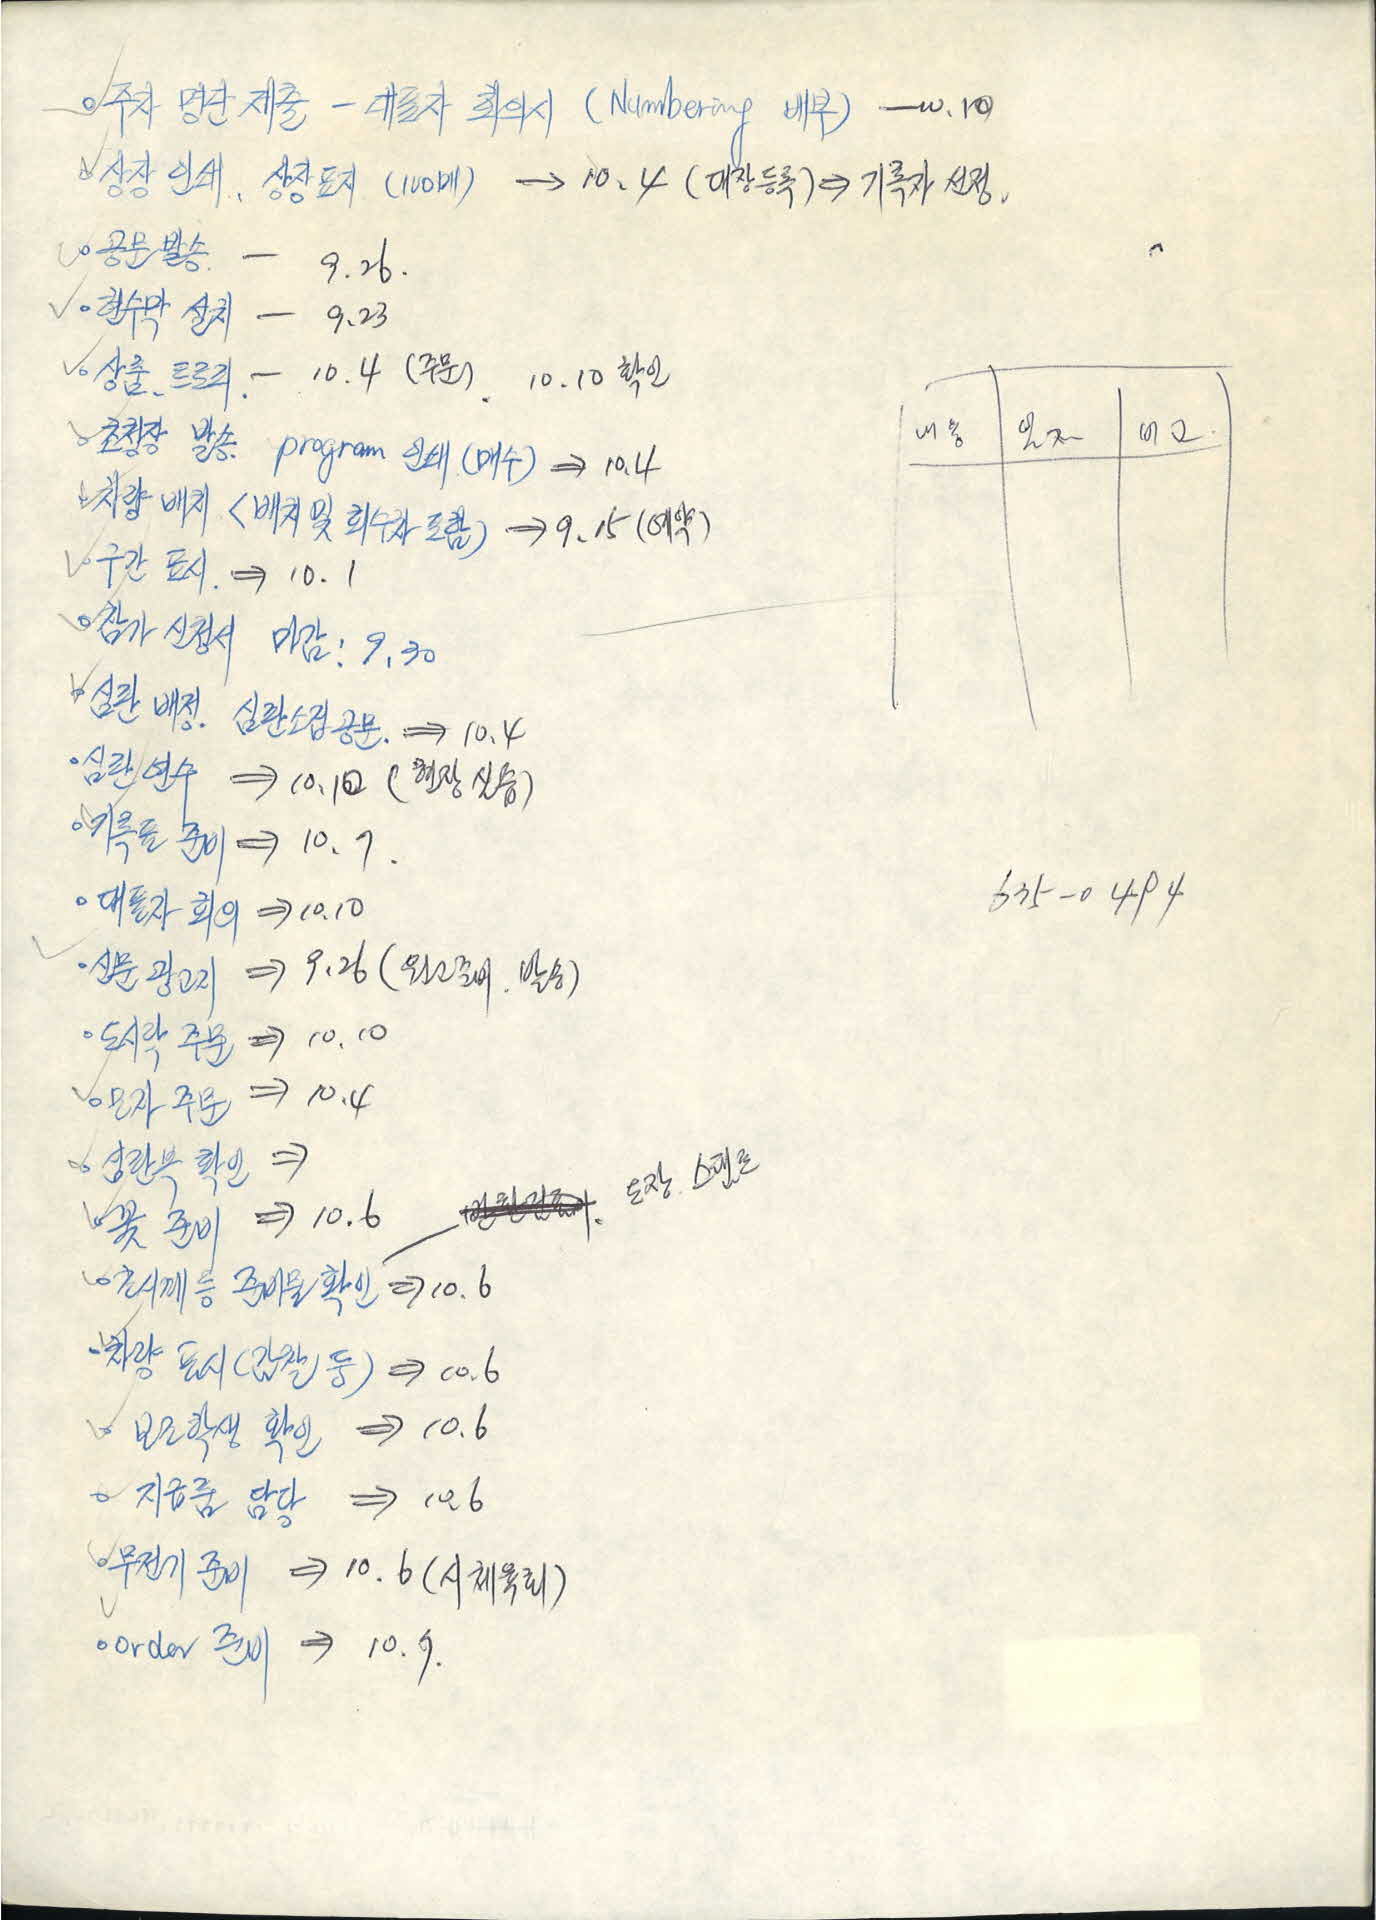 주자 명단 제출 - 대표자 회의시 (Numbering 배부) - 10.10
상장 인쇄, 상장표지 (100매) → 10.4 (대장등록) ⇒ 기록자 선정.
공문 발송 - 9.26.
현수막 설치 - 9.23
상품, 트로피. - 10.4 (주문). 10.10 확인
초청장 발송. program 인쇄 (매수) ⇒ 10.4
차량 배치 <배치 및 회수차 포함) ⇒ 9.15 (예약)
구간 표시. ⇒ 10.1
참가 신청서 마감 : 9.30
심판 배정. 심판소집공문. ⇒ 10.4
심판 연수 ⇒ 10.10 (현장 실습)
기록표 준비 ⇒ 10.7.
대표자 회의 ⇒ 10.10
신문 광고지 ⇒ 9.26 (원고준비. 발송)
도시락 주문 ⇒ 10.10
모자 주문 ⇒ 10.4
심판복 확인 ⇒
꽃 준비 ⇒ 10.6
도장. 스탬프
초시계 등 준비물 확인 ⇒ 10.6
차량 표시 (깃발 등) ⇒ 10.6
보조학생 확인 ⇒ 10.6
지급품 담당 ⇒ 10.6
무전기 준비 ⇒ 10.6 (시체육회)
order 준비 ⇒ 10.7.
내용 일자 비고
635-0494